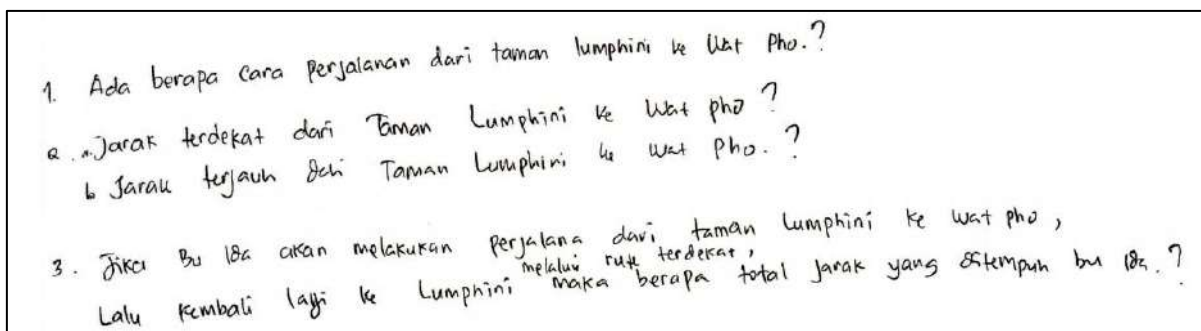 1. Ada berapa cara perjalanan dari taman lumphini ke Wat Pho.?
2. a. Jarak terdekat dari Taman Lumphini ke Wat pho ?
b Jarak terjauh dari Taman Lumphini ke Wat Pho. ?
3. Jika Bu Ida akan melakukan perjalana dari taman lumphini ke wat pho,
melalui rute terdekat,
Lalu kembali lagi ke Lumphini maka berapa total jarak yang ditempuh bu Ida.?